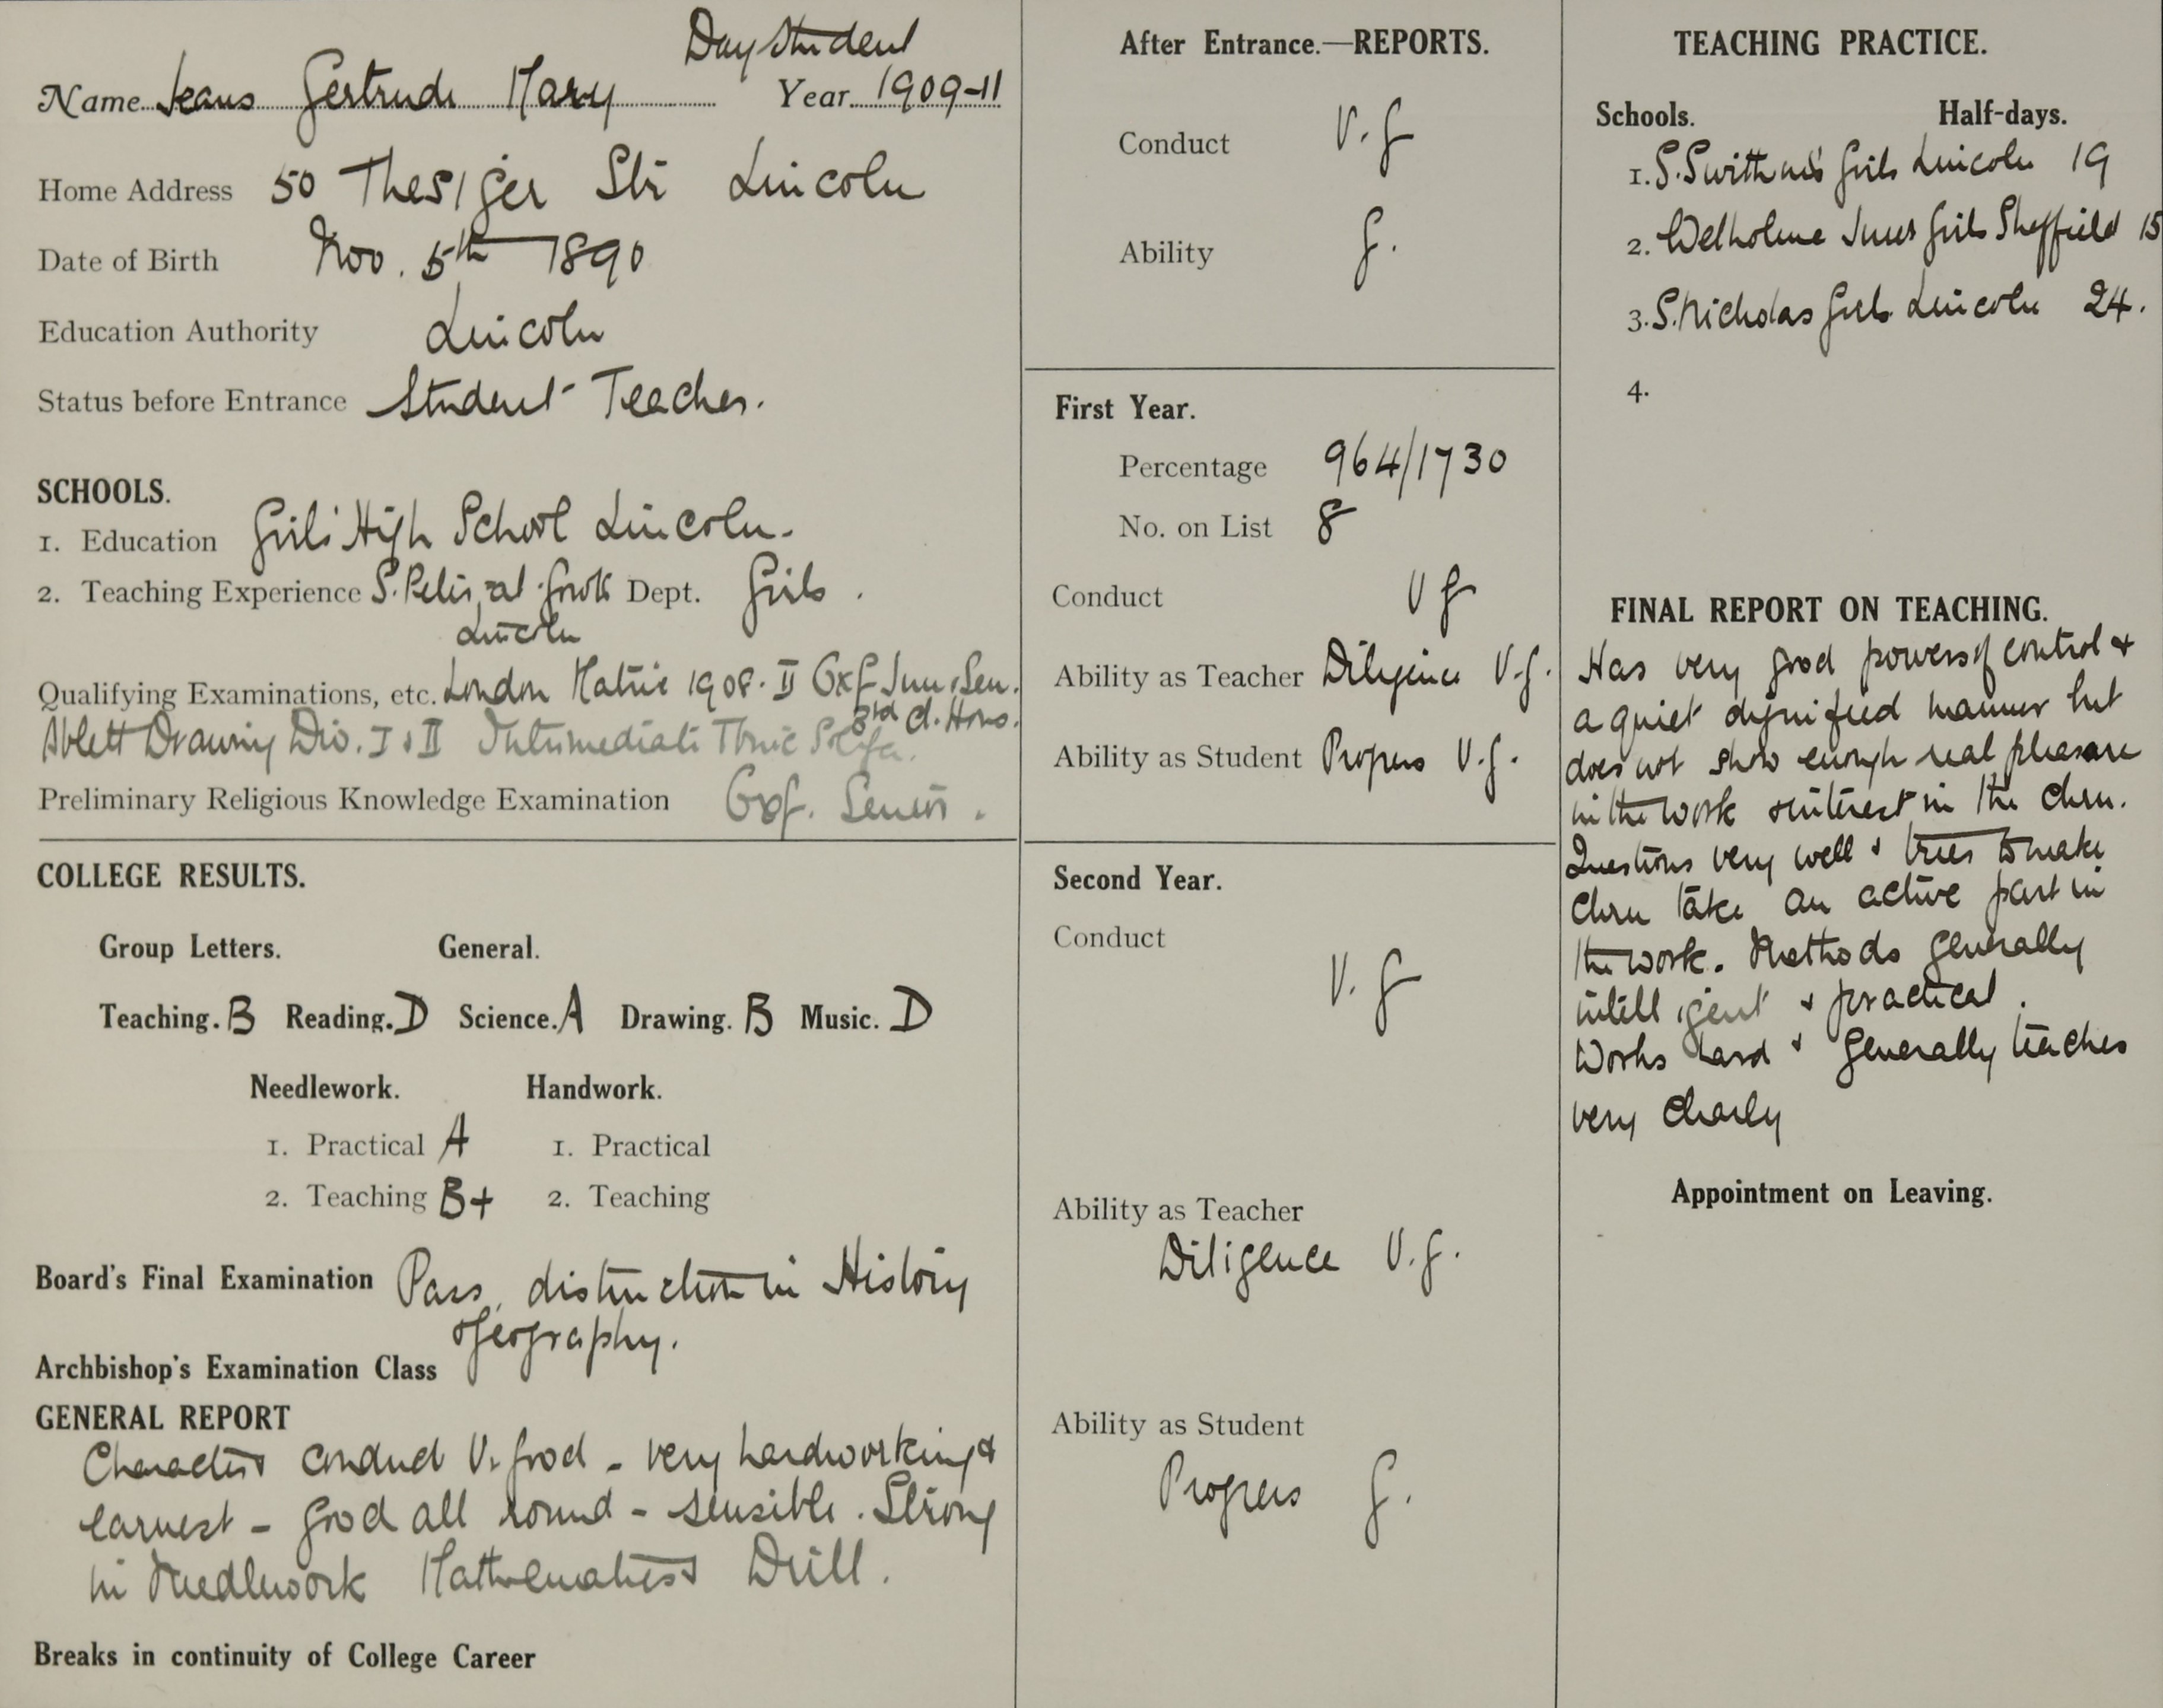 Day Student
Name Jeans Gertrude Mary Year 1909-11
Home Address 50 Thesiger Str Lincoln
Date of Birth Nov. 5th 1890
Education Authority Lincoln
Status before Entrance Student Teacher.
SCHOOLS.
1. Education Girls' High School Lincoln.
2. Teaching Experience S. Peter at Gowts Dept. Girls.
Lincoln
Qualifying Examinations, etc. London Matric 1908. II Oxf Jun & Sen.
3rd Cl. Hons.
Ablett Drawing Div. I & II Intermediate Tonic Solfa.
Preliminary Religious Knowledge Examination Oxf. Senior.
COLLEGE RESULTS.
Group Letters. General.
Teaching. B Reading. D Science. A Drawing. B Music. D
Needlework. Handwork.
1. Practical A 1. Practical
2. Teaching B+ 2. Teaching
Board's Final Examination Pass, distinction in History
& Geography.
Archbishop's Examination Class
GENERAL REPORT
Character & conduct V. good - very hardworking &
earnest - good all round - sensible. Strong
in Needlework Mathematics & Drill.
Breaks in continuity of College Career
After Entrance.—REPORTS.
Conduct V. g
Ability g.
First Year.
Percentage 964/1730
No. on List 8
Conduct V g
Ability as Teacher Diligence V.g.
Ability as Student Progress V.g.
Second Year.
Conduct
V. g
Ability as Teacher
Diligence V.g.
Ability as Student
Progress g.
TEACHING PRACTICE.
Schools. Half-days.
1. S. Swithin's Girls Lincoln 19
2. Girls Sheffield 15
3. S. Nicholas Girls Lincoln 24.
4.
FINAL REPORT ON TEACHING.
Has very good powers of control &
a quiet dignified manner but
does not show enough real pleasure
in the work & interest in the chn.
Questions very well & tries to make
chn take an active part in
the work. Methods generally
intelligent & practical.
Works hard & generally teaches
very clearly
Appointment on Leaving.